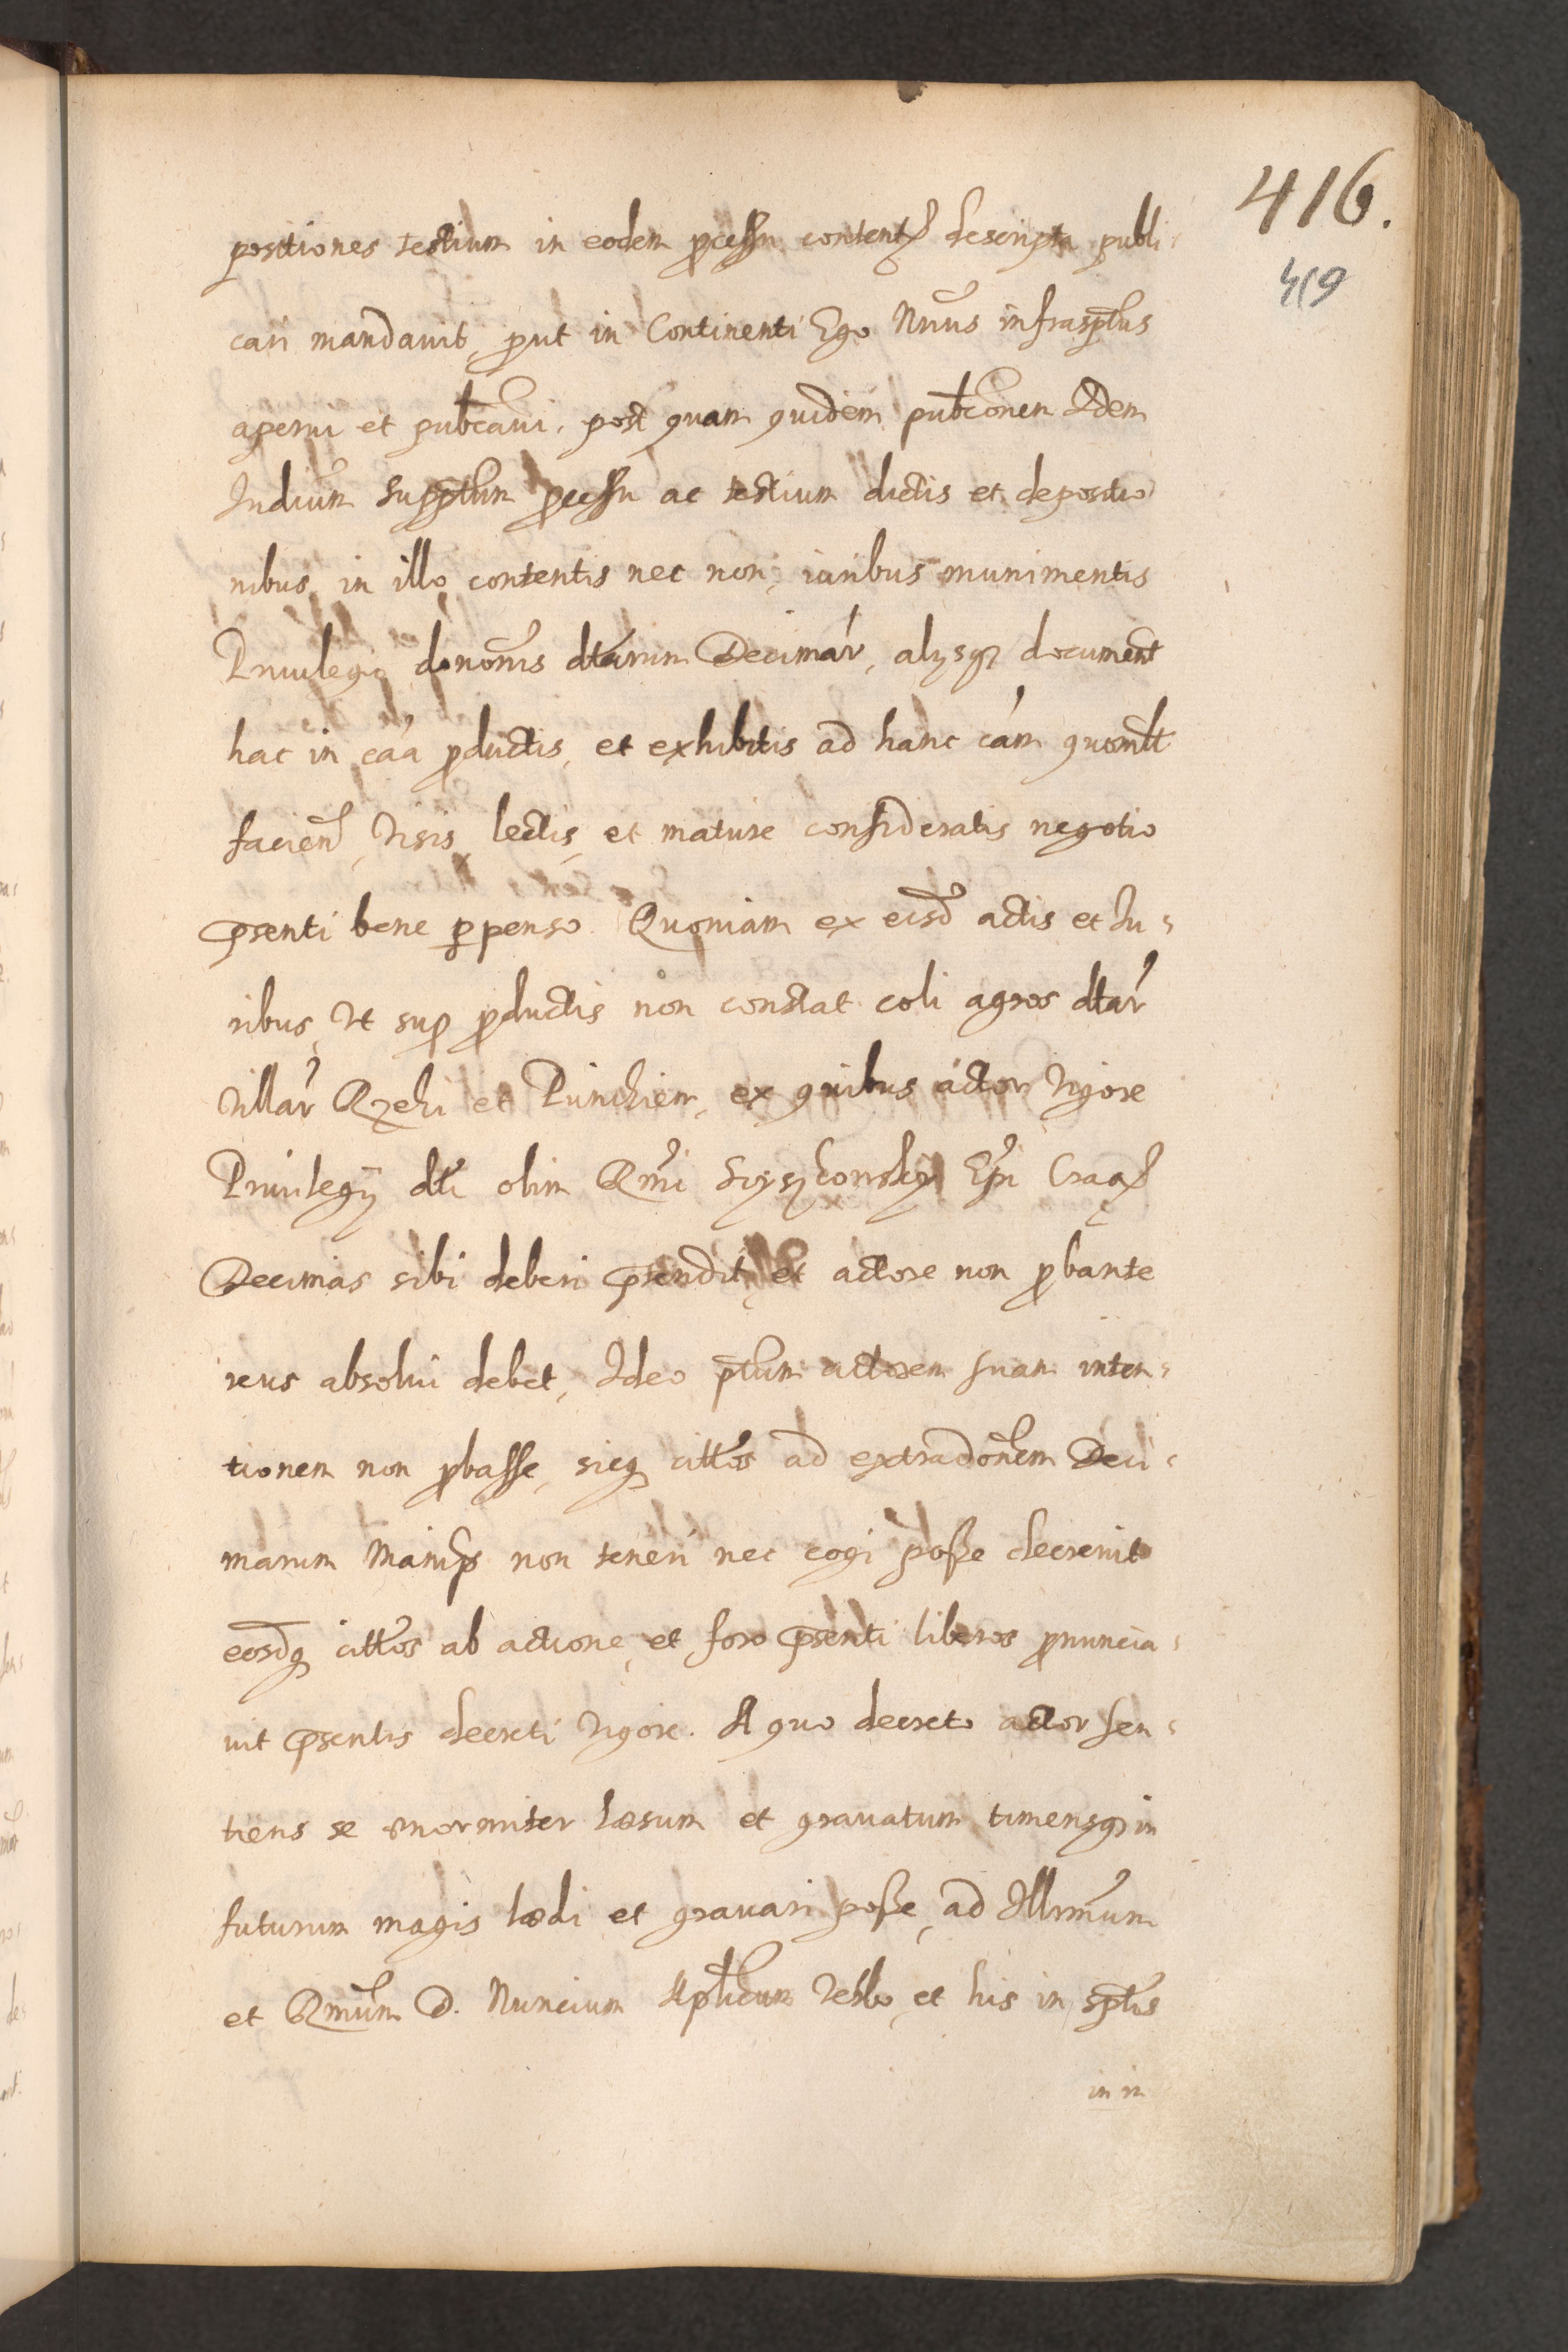 416.
419
positiones testium in eodem ꝓcessu content descripta publi-
cari mandavit, ꝓut in Continenti Ego Nrius infrasptus
aperui et pubcavi. post quam quidem pubconem Idem
Iudium supptum ꝓcessu ac testium dictis et depositio
nibus in illo contentis nec non iuribus munimentis
Privilegio dononis dtarum Decimar, alijsqꝫ document
hac in caa ꝓductis, et exhibitis ad hanc cam quomlt
facien, Visis lectis, et mature consideratis negotio
pnsenti bene ꝑpenso. Quoniam ex eisd actis et Iu-
ribus, Vt sup ꝓductis non constat coli agros dtar
Villar Rzehi et Punchien, ex quibus actor Vigore
Privilegij dti olim Rmi Epi Craco
Decimas sibi deberi prtendit, et actore non ꝓbante
reus absolvi debet, Ideo ptum actorem suam inten-
tionem non ꝓbasse, sicqꝫ cittos ad extradonem Deci-
marum Manip non teneri nec cogi posse decrevit
eosdqꝫ cittos ab actione, et foro pnsenti liberos ꝓnuncia-
vit pnsentis decreti Vigore. A quo decreto actor sen-
tiens se enormiter læsum et gravatum timensqꝫ in
futurum magis lædi et gravari posse, ad Illrmum
et Rmum D. Nuncium Aplicum Verbo, et his in sptis
in m